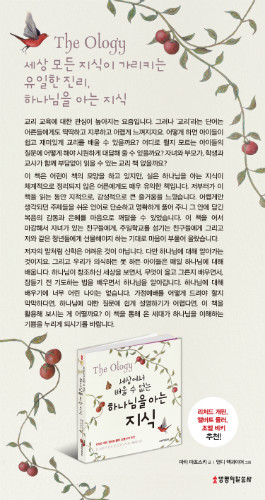 The Ology
세상 모든 지식이 가리키는
유일한 진리,
하나님을 아는 지식
교리 교육에 대한 관심이 높아지는 요즘입니다. 그러나 '교리'라는 단어는
어른들에게도 딱딱하고 지루하고 어렵게 느껴지지요. 어떻게 하면 아이들이
쉽고 재미있게 교리를 배울 수 있을까요? 어디로 튈지 모르는 아이들의
질문에 어떻게 해야 시원하게 대답해 줄 수 있을까요? 자녀와 부모가, 학생과
교사가 함께 부담없이 읽을 수 있는 교리 책 없을까요?
이 책은 어린이 책의 모양을 하고 있지만, 실은 하나님을 아는 지식이
체계적으로 정리되지 않은 어른에게도 매우 유익한 책입니다. 저부터가 이
책을 읽는 동안 지적으로, 감성적으로 큰 즐거움을 느꼈습니다. 어렵게만
생각되던 주제들을 쉬운 언어로 단순하고 명확하게 풀어 주니 그 안에 담긴
복음의 감동과 은혜를 마음으로 깨달을 수 있었습니다. 이 책을 어서
마감해서 자녀가 있는 친구들에게, 주일학교를 섬기는 친구들에게 그리고
저와 같은 청년들에게 선물해야지 하는 기대로 마음이 부풀어 올랐습니다.
저자의 말처럼 신학은 어려운 것이 아닙니다. 다만 하나님에 대해 알아가는
것이지요. 그리고 우리가 의식하든 못 하든 아이들은 매일 하나님에 대해
배웁니다. 하나님이 창조하신 세상을 보면서, 무엇이 옳고 그른지 배우면서,
잠들기 전 기도하는 법을 배우면서 하나님을 알아갑니다. 하나님에 대해
배우기에 너무 어린 나이는 없습니다. 가정예배를 어떻게 드려야 할지
막막하다면, 하나님에 대한 질문에 쉽게 설명하기가 어렵다면, 이 책을
활용해 보시는 게 어떨까요? 이 책을 통해 온 세대가 하나님을 이해하는
기쁨을 누리게 되시기를 바랍니다.
The Ology
세상에서
배울 수 없는
하나님을 아는
지식
추천!
생명의말씀사